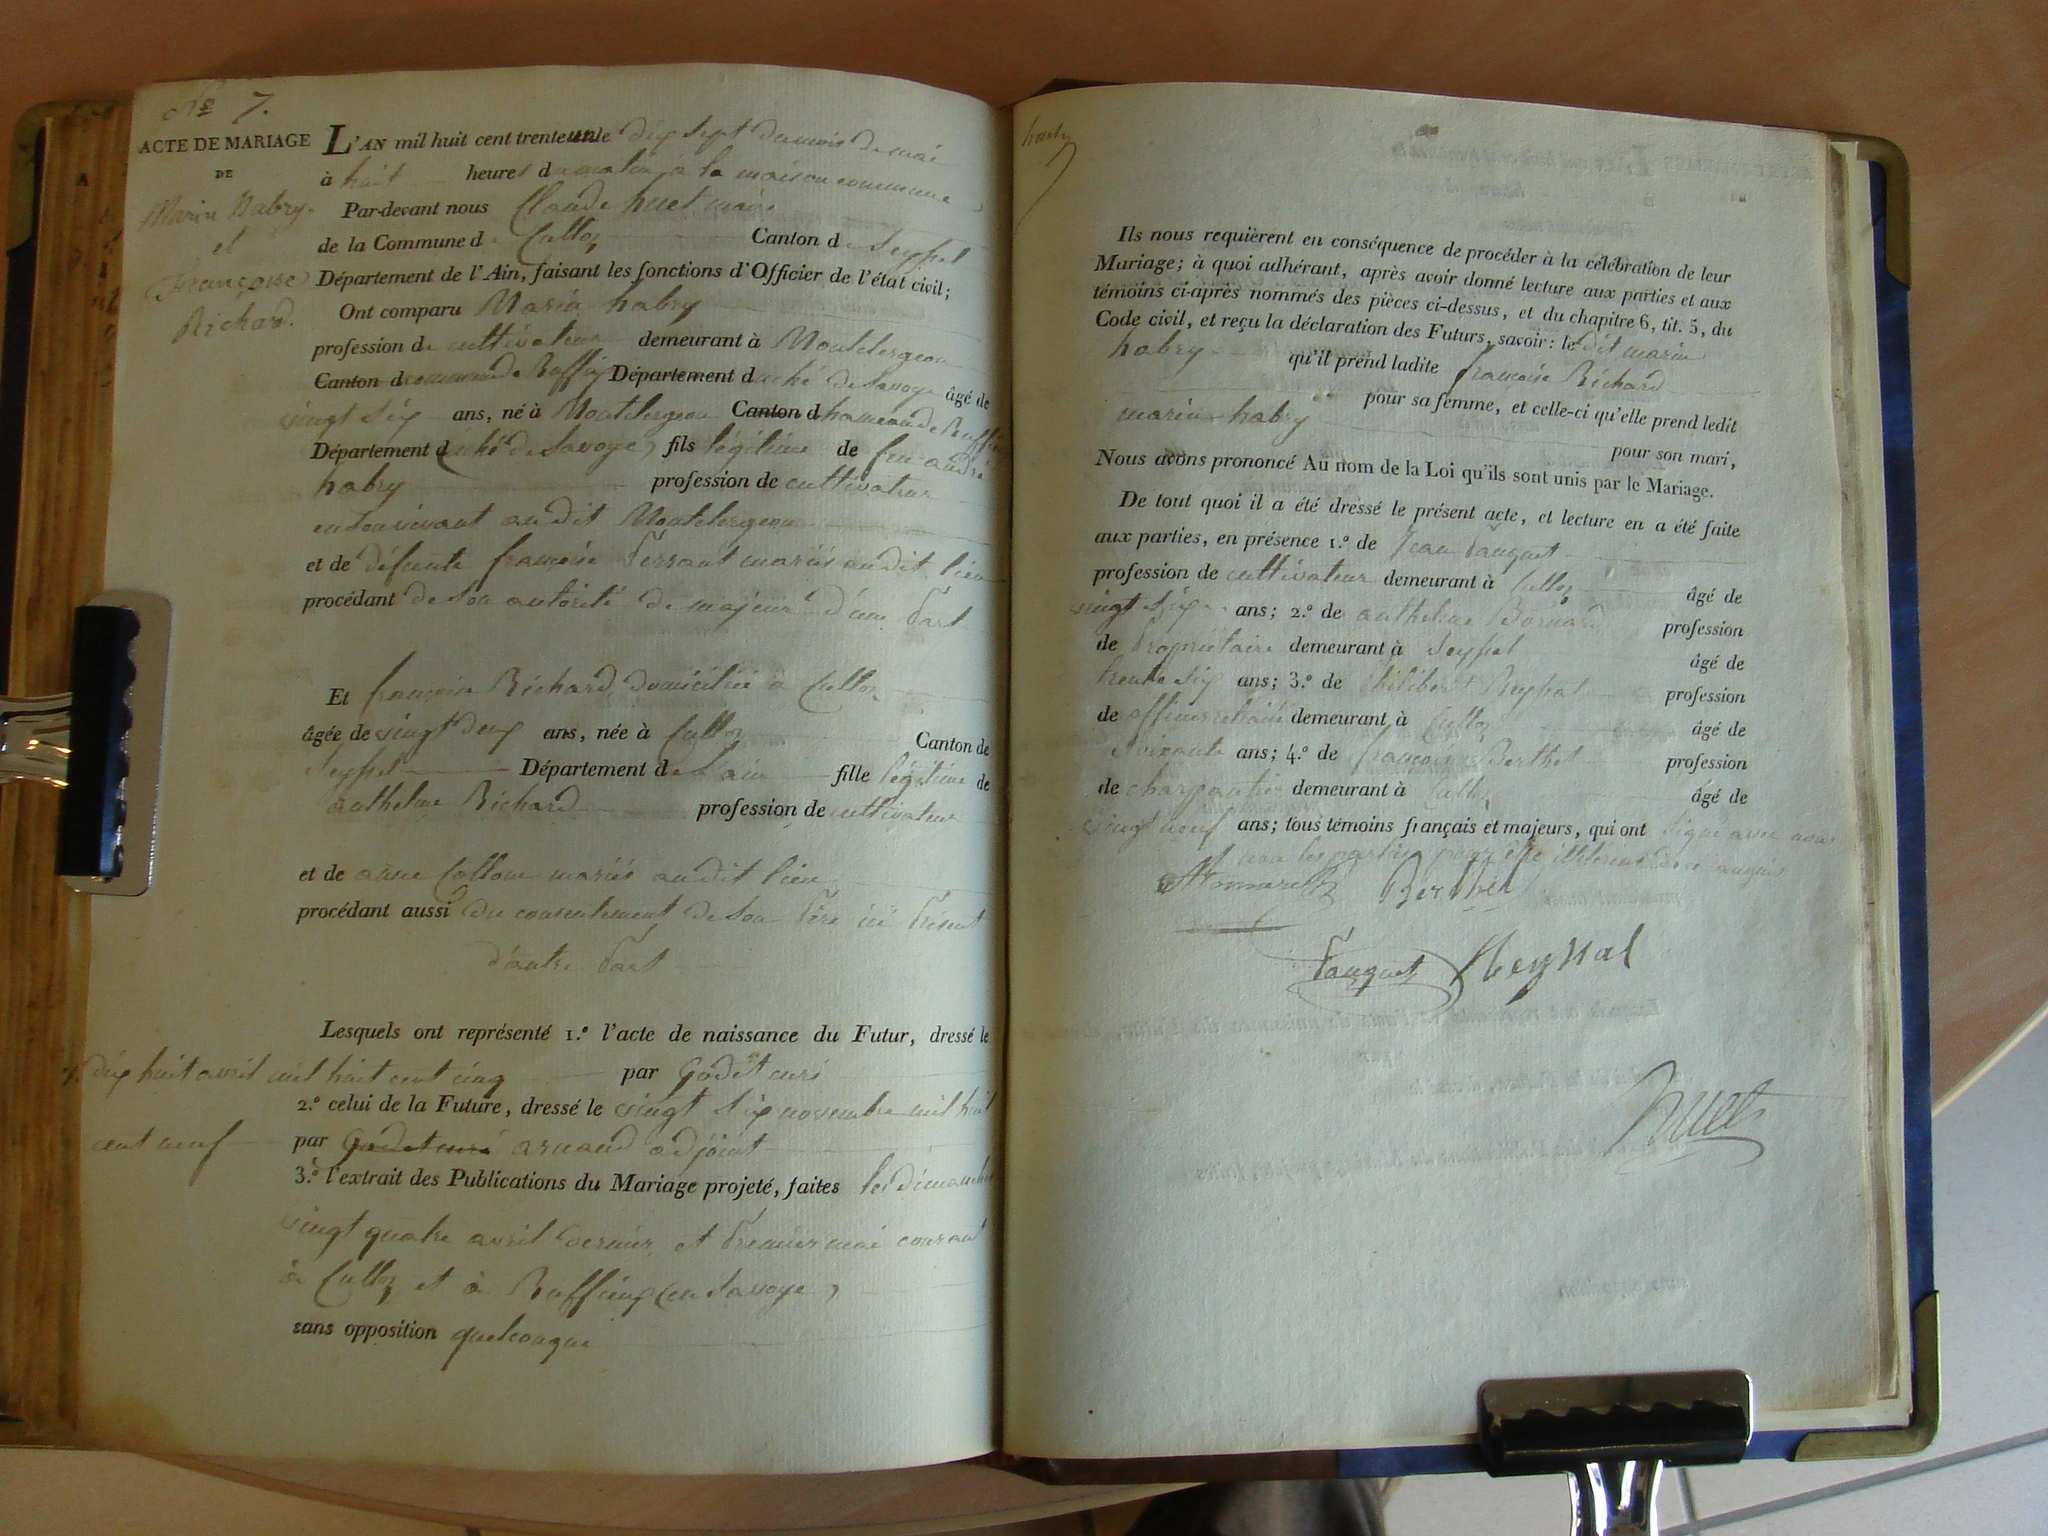 N.o 7.
ACTE DE MARIAGE
DE
Marin Habry
et
Françoise
Richard.
L'AN mil huit cent trente un le dix sept du mois de mai
à huit heures du matin, à la maison commune
Par-devant nous Claude huet maire
de la Commune de Culloz Canton de Seyssel
Département de l'Ain, faisant les fonctions d'Officier de l'état civil;
Ont comparu Marin habry
profession de cultivateur demeurant à Montclergeon
Canton d commune de Ruffieux Département duché de Savoye âgé de
vingt six ans, né à Montclergeon Canton d hameau de Ruffieux
Département duché de Savoye, fils légitime de feu andré
habry profession de cultivateur
en son vivant au dit Montclergeon
et de défunte françoise mariés au dit lieu
procédant de son autorité de majeur d'une Part
Et françoise Richard, domiciliée à Culloz
âgée de vingt deux ans, née à Culloz Canton de
Seyssel Département de L'ain fille légitime de
anthelme Richard profession de cultivateur
et de anne mariés au dit lieu
procédant aussi du consentement de son Père ici Présent
d'autre Part
Lesquels ont représenté 1.o l'acte de naissance du Futur, dressé le
dix huit avril mil huit cent cinq par Godet curé
2.o celui de la Future, dressé le vingt six novembre mil huit
cent neuf par Godet curé arnaud adjoint
3.o l'extrait des Publications du Mariage projeté, faites les dimanches
vingt quatre avril dernier et Premier mai courant
à Culloz et à Ruffieux en Savoye,
sans opposition quelconque
Ils nous requièrent en conséquence de procéder à la célébration de leur
Mariage; à quoi adhérant, après avoir donné lecture aux parties et aux
témoins ci-après nommés des pièces ci-dessus, et du chapitre 6, tit. 5, du
Code civil, et reçu la déclaration des Futurs, savoir: le dit marin
habry qu'il prend ladite françoise Richard
pour sa femme, et celle-ci qu'elle prend ledit
marin habry pour son mari,
Nous avons prononcé Au nom de la Loi qu'ils sont unis par le Mariage.
De tout quoi il a été dressé le présent acte, et lecture en a été faite
aux parties, en présence 1.o de Jean Fauquet
profession de cultivateur demeurant à Culloz âgé de
vingt six ans; 2.o de anthelme profession
de Propriétaire demeurant à Seyssel âgé de
trente six ans; 3.o de Philibert Reyssal profession
de officier retraité demeurant à Culloz âgé de
soixante ans; 4.o de françois Berthet profession
de charpentier demeurant à Culloz âgé de
vingt neuf ans; tous témoins français et majeurs, qui ont signé avec nous
et non les parties pour être illitérées de ce enquis
Berthet
Fauquet Reyssal
huet